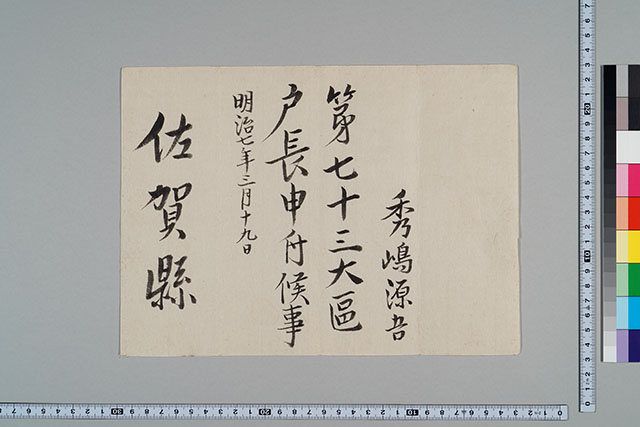 秀嶋源吾
第七十三大區
戸長申付候事
明治七年三月十九日
佐賀縣